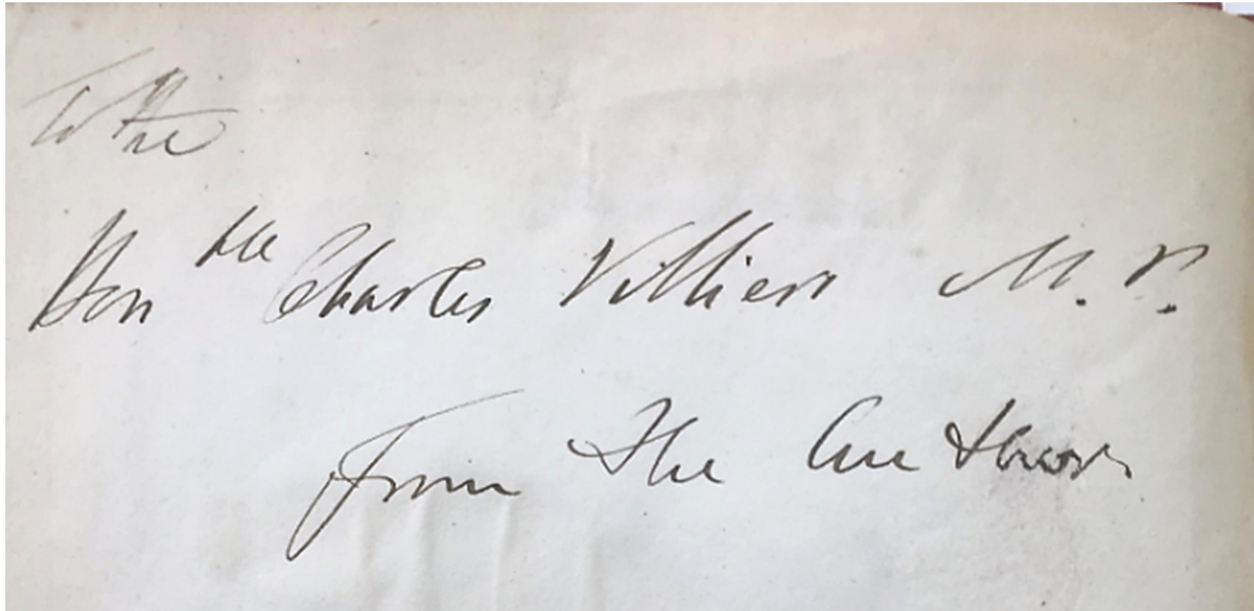 To the
Honble Charles Villiers M.P.
From The Author